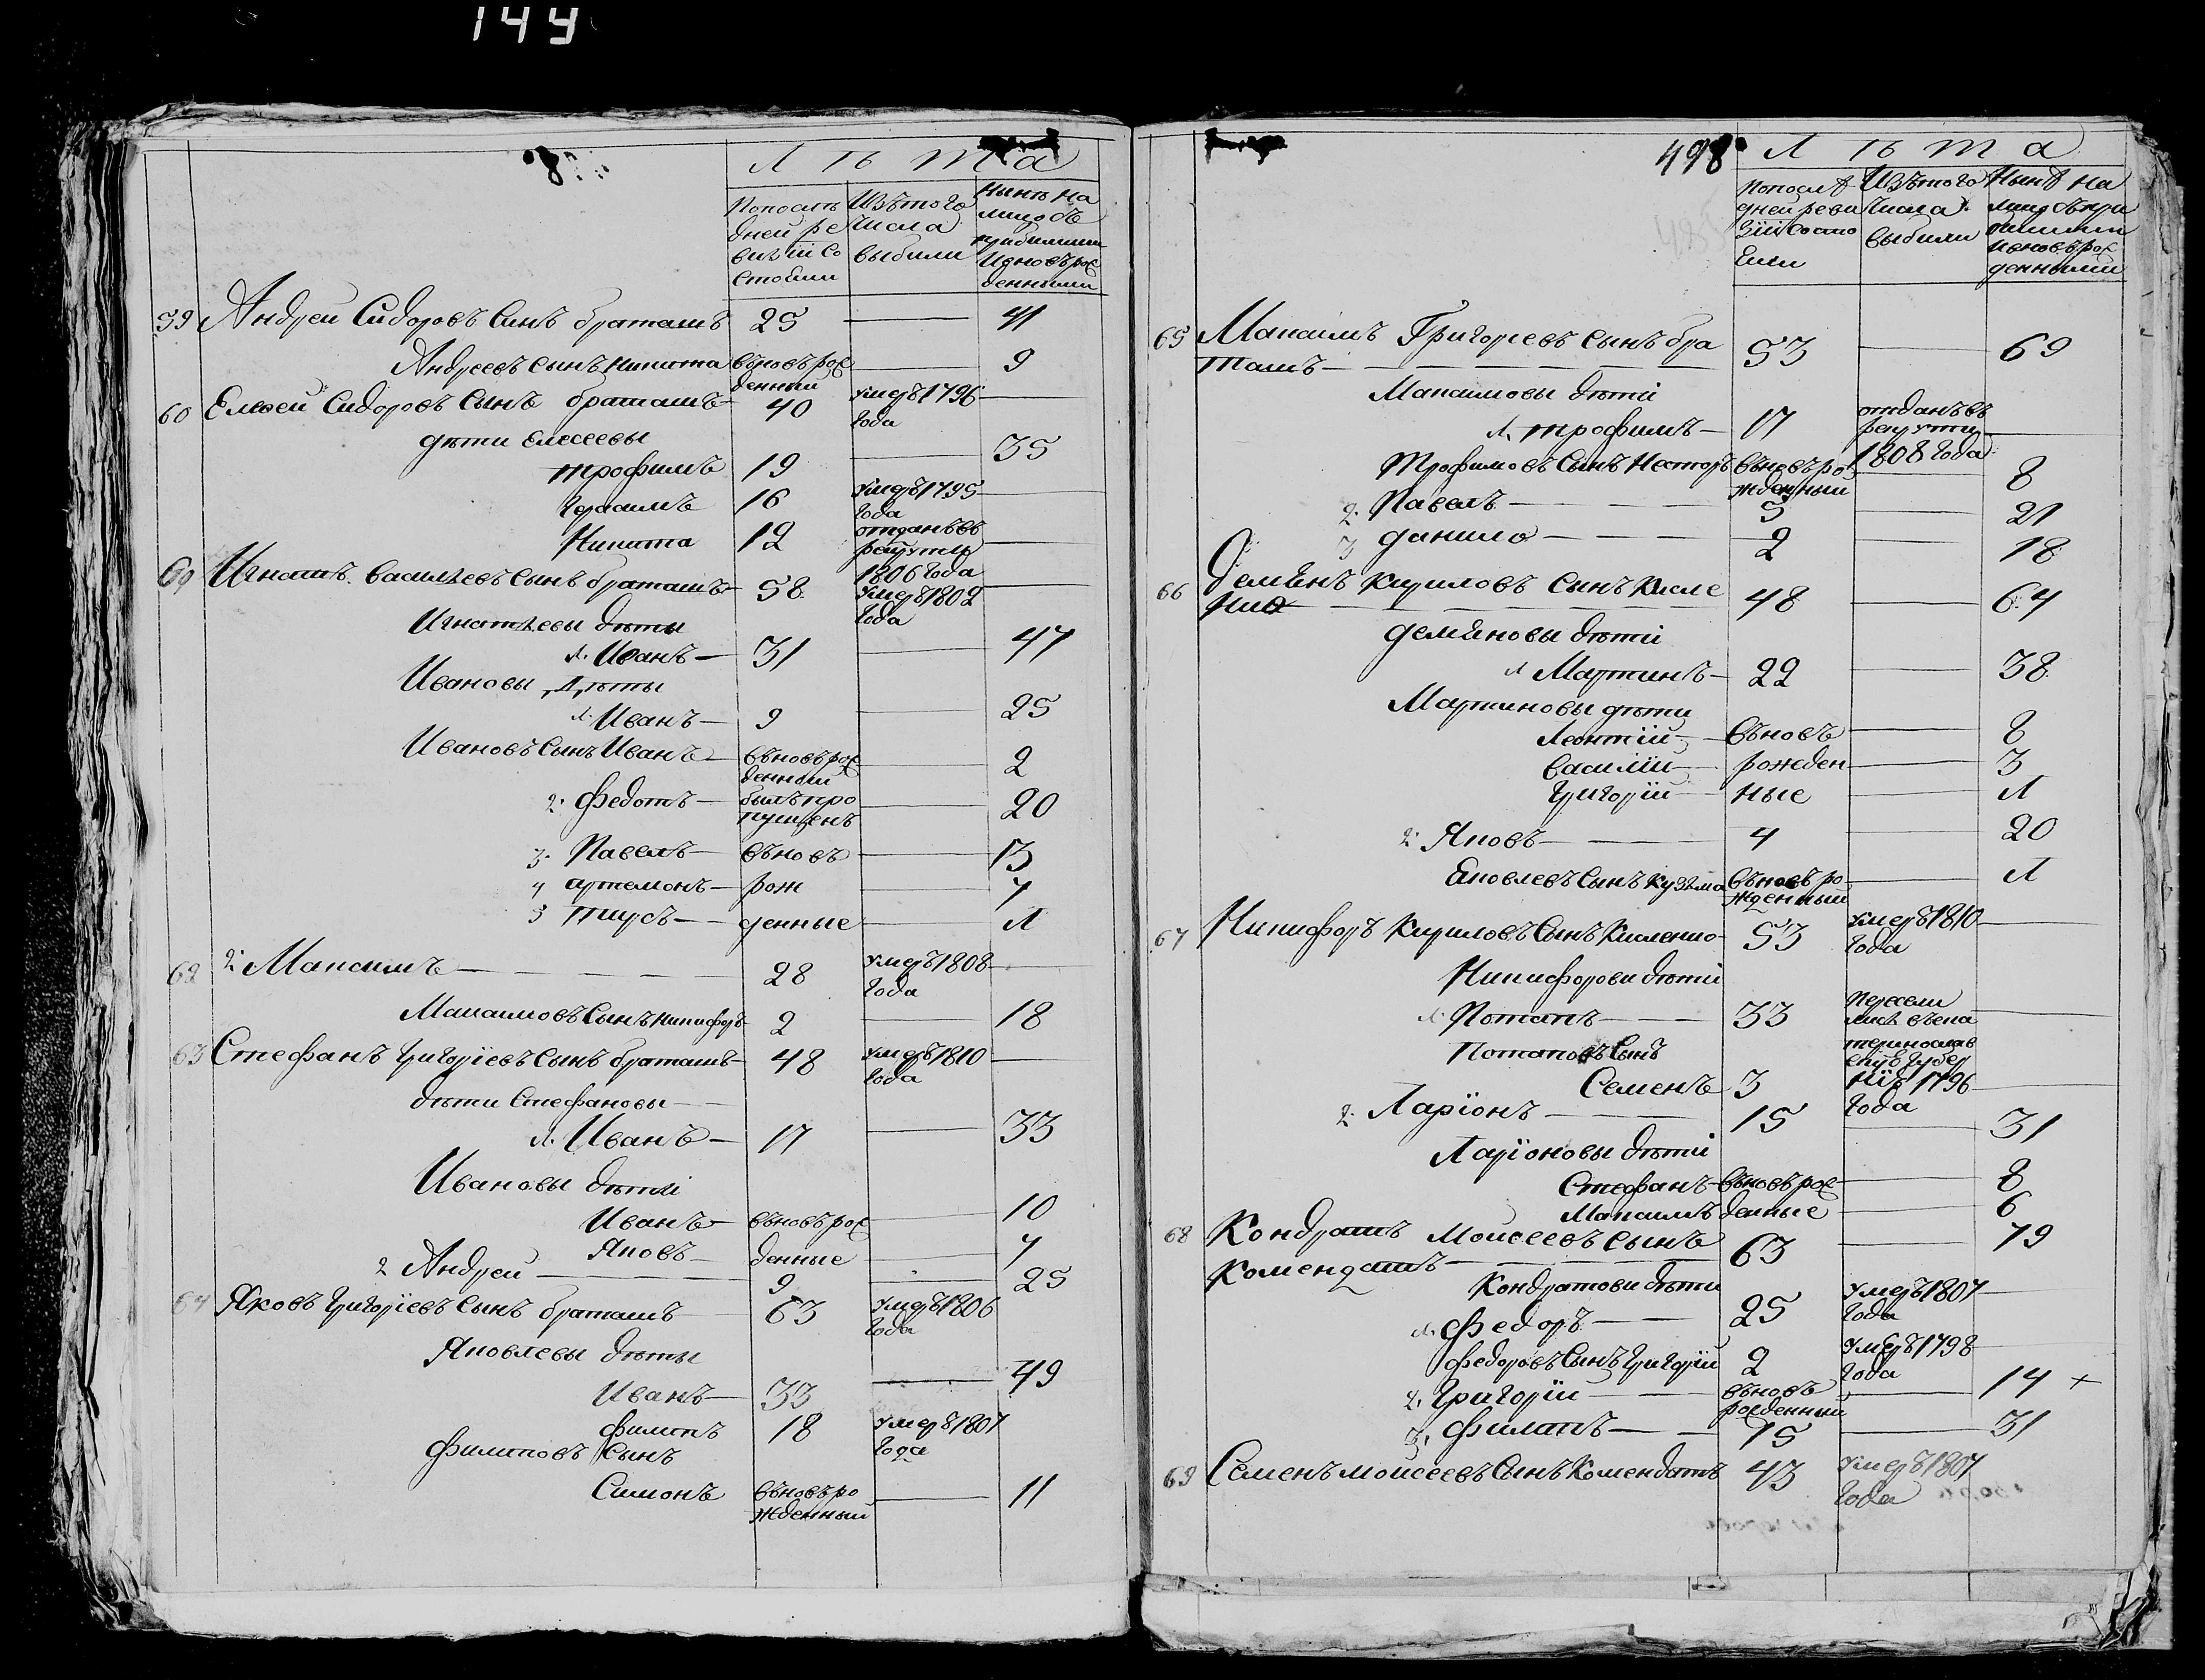 144
8
Лѣта
Попослѣ
дней ре
визіи Со
стояли
Изътого
числа
выбыли
Нынѣ на
лицо съ
прибылыми
Ивновърож
денными
59 Андрей Сидоровъ Сынъ браташъ 25 — 41
Андреевъ Сынъ Никита вновърож — 9
денный
60 Елисей Сидоровъ Сынъ браташъ 40 умеръ 1796 —
года
дѣти Елесеевы
трофимъ 19 — 35
Герасимъ 16 умеръ 1795 —
года
Никита 12 отданъ въ —
рекруты
1806 года
Игнатъ Васильевъ Сынъ браташъ 58 умеръ 1802 —
года
Игнатьевы дѣты
1. Иванъ — 31 — 47
Ивановы дѣты
1. Иванъ — 9 — 25
Ивановъ Сынъ Иванъ — вѣновърож — 2
денный
2. Федотъ — былъ про — 20
пущенъ
3. Павелъ — вѣновъ — 13
4 артемонъ — рож — 7
5 титъ — денные — 1
62 2. Максимъ — 28 умеръ 1808 —
года
Максимовъ Сынъ Никифоръ 2 — 18
63 Стефанъ Григоріевъ Сынъ браташъ 48 умеръ 1810 —
года
дѣти Стефановы
1. Иванъ — 17 — 33
Ивановы дѣти
Иванъ — вѣновърож — 10
Яковъ — денные — 7
2 Андрей — 9 — 25
64 Яковъ Григоріевъ Сынъ браташъ 63 умеръ 1806
года
Яковлевы дѣты
Иванъ — 33 — 49
филипъ 18 умеръ 1807
года
Филиповъ Сынъ
Симонъ вѣновъро — 11
жденный
498
Лѣта
Попослѣ
дней реви
зіи Состо
яли
Изътого
числа
выбыли
Нынѣ на
лицо съпри
былыми
ивновърож
денными
65 Максимъ Григорьевъ Сынъ бра
ташъ — 53 — 69
Максимовы дѣти
1. трофимъ — 17 отданъ въ
рекруты —
1808 года
Трофимовъ Сынъ Несторъ вѣновъро — 8
жденный
2. Павелъ — 5 — 21
3 данило — 2 — 18
66 Демянъ Кириловъ Сынъ Кисле
нко — 48 — 64
демяновы дѣти
1 Мартинъ — 22 — 38
Мартиновы дѣти
Леонтій — вѣновъ — 8
Василій — рожден — 3
Григорій — ные — 1
2. Яковъ — 4 — 20
Яковлевъ Сынъ Кузьма вѣновъро — 1
жденный
67 Никифоръ Кириловъ Сынъ Кисленко 53 умеръ 1810 —
года
Никифорови дѣти
1. Потапъ — 33 Пересели
лись въека —
Потаповъ Сынъ теринослав
скую губер
Семенъ 3 нію 1796 —
2. Ларіонъ — 15 года — 31
Ларіоновы дѣти
Стефанъ вѣновърож — 8
Максимъ денные — 6
68 Кондратъ Моисеевъ Сынъ
Комендатъ — 63 — 79
Кондратови дѣти
1. Федоръ — 25 умеръ 1807 —
года
Федоровъ Сынъ Григорій 2 умеръ 1798
года
2. Григорій — вѣновъ — 14 +
рожденный
3. филатъ — 15 — 31
69 Семенъ моисеевъ Сынъ Комендатъ 43 умеръ 1807
года